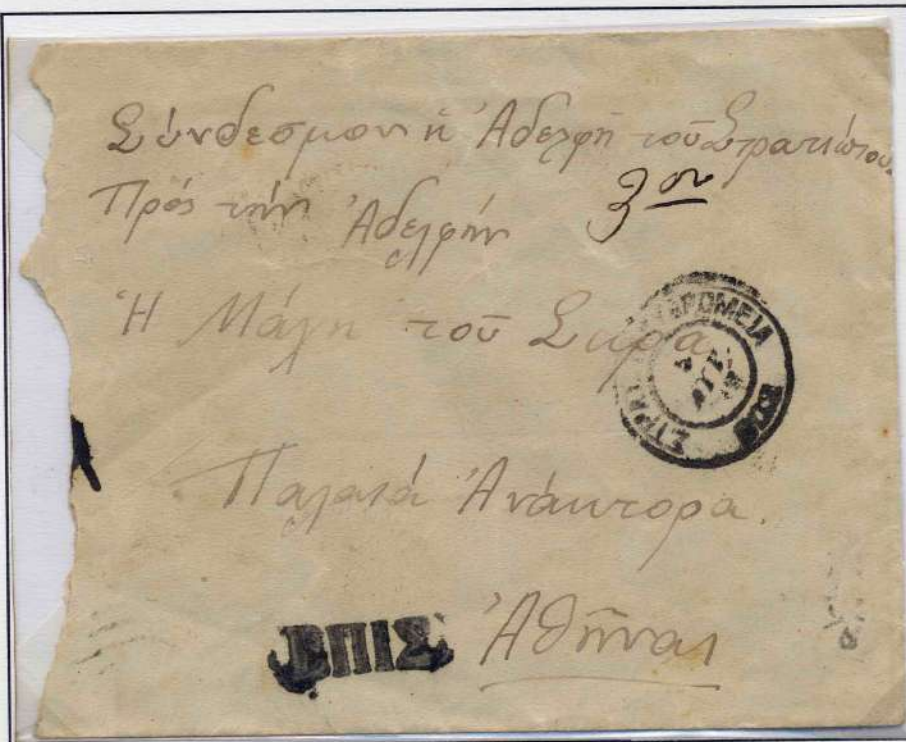 Σύνδεσμον ἡ Ἀδελφὴ τοῦ Στρατιώτου
Πρὸς τὴν Ἀδελφὴν 3ον
Ἡ Μάχη τοῦ
Παλαιὰ Ἀνάκτορα.
ΕΠΙΣ Ἀθῆναι